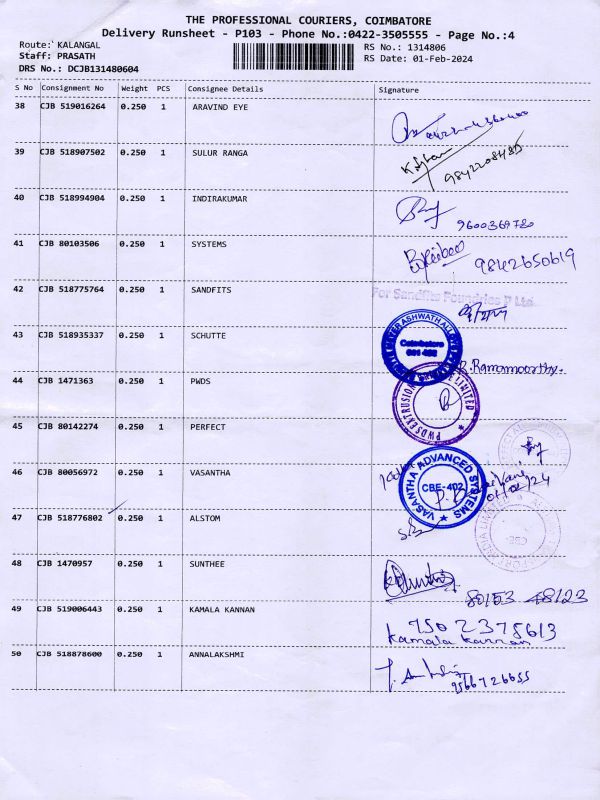 THE PROFESSIONAL COURIERS, COIMBATORE
Delivery Runsheet - P103 - Phone No.:0422-3505555 - Page No.:4
Route: KALANGAL
RS No.: 1314806
Staff: PRASATH
RS Date: 01-Feb-2024
DRS No.: DCJB131480604
S No Consignment No Weight PCS Consignee Details Signature
38 CJB 519016264 0.250 1 ARAVIND EYE
39 CJB 518907502 0.250 1 SULUR RANGA
9842208485
40 CJB 518994904 0.250 1 INDIRAKUMAR
9600369780
41 CJB 80103506 0.250 1 SYSTEMS
9842650619
42 CJB 518775764 0.250 1 SANDFITS
For Sandfits Foundries P Ltd.
43 CJB 518935337 0.250 1 SCHUTTE
Coimbatore
R. Ramamoorthy.
44 CJB 1471363 0.250 1 PWDS
PWDS EXTRUSION LIMITED
45 CJB 80142274 0.250 1 PERFECT
46 CJB 80056972 0.250 1 VASANTHA
VASANTHA ADVANCED SYSTEMS
CBE-402
01/02/24
47 CJB 518776802 0.250 1 ALSTOM
CBE
48 CJB 1470957 0.250 1 SUNTHEE
80153 48123
49 CJB 519006443 0.250 1 KAMALA KANNAN
7502375613
Kamala Kannan
50 CJB 518878600 0.250 1 ANNALAKSHMI
9566726655